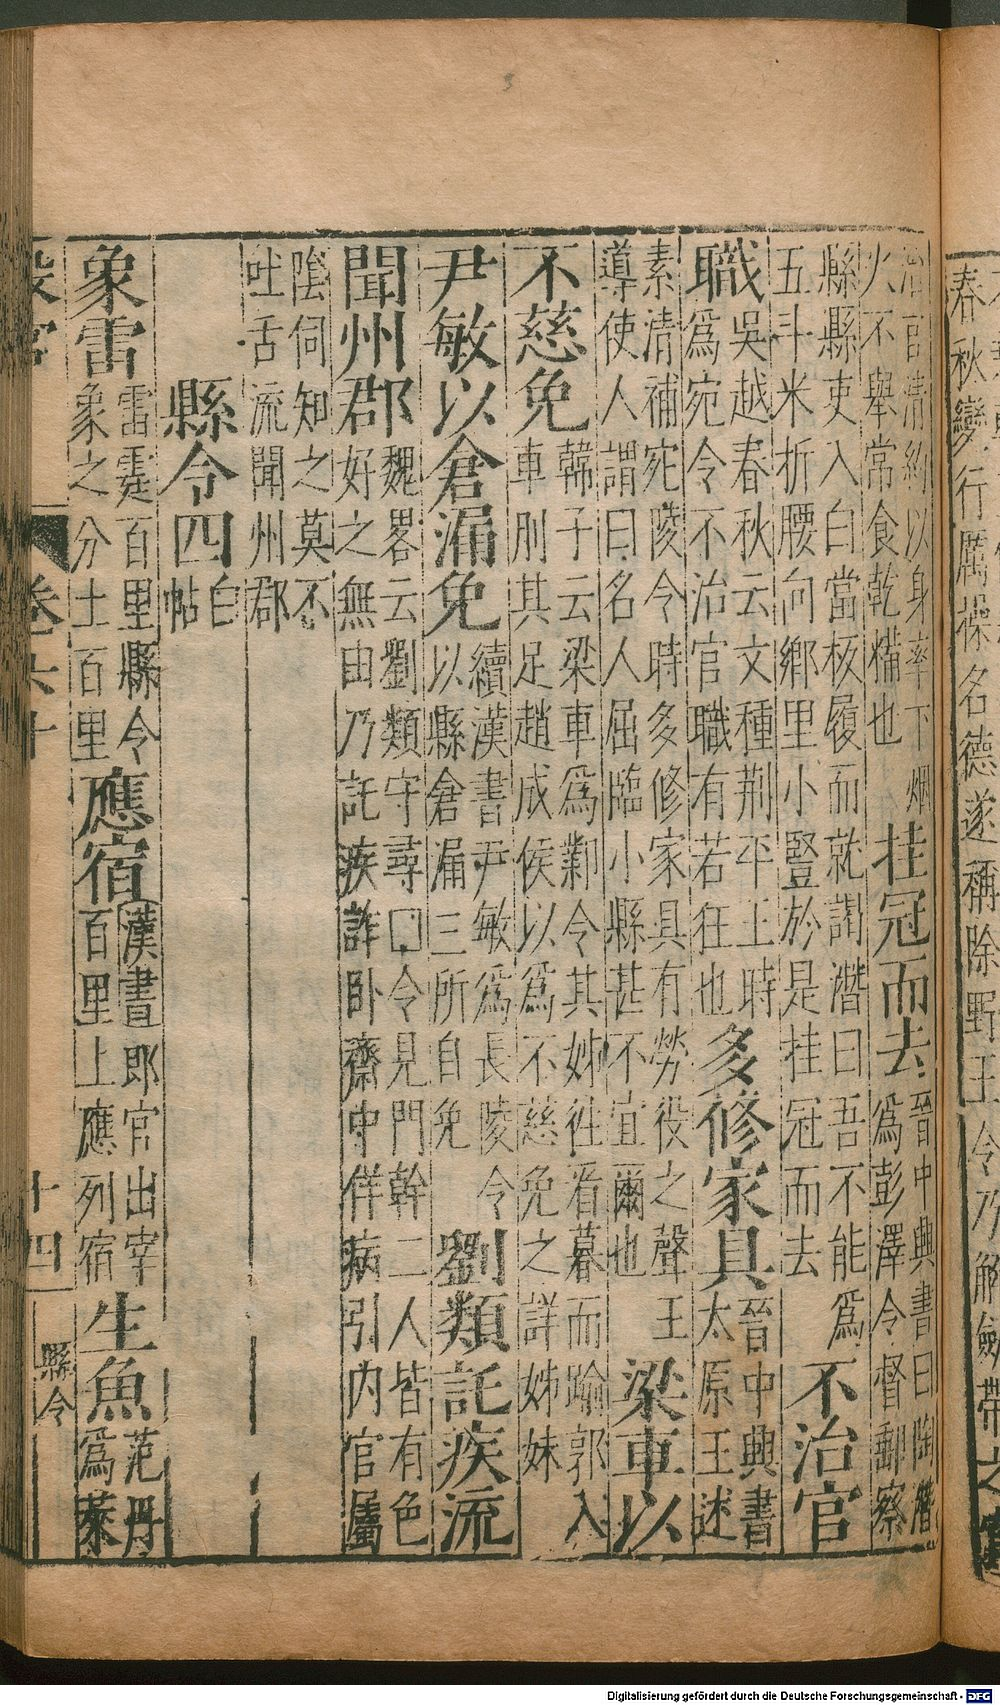 春秋變行厲操名德遂稱除野王令乃解劍帶之
治官清約以身率下烟
火不舉常食乾糒也
挂冠而去
晉中興書曰陶潛
為彭澤令督郵察
縣縣吏入白當板履而就謁潛曰吾不能為
五斗米折腰向鄉里小豎於是挂冠而去
不治官
職
吳越春秋云文種荆平王時
為宛令不治官職有若狂也
多修家具
晉中興書
太原王述
素清補宛陵令時多修家具有勞役之聲王
導使人謂曰名人屈臨小縣甚不宜爾也
梁車以
不慈免
韓子云梁車為鄴令其姊往看暮而踰郭入
車刖其足趙成侯以為不慈免之詳姊妹
尹敏以倉漏免
續漢書尹敏為長陵令
以縣倉漏三所自免
劉類託疾流
聞州郡
魏畧云劉類守尋□令見門幹二人皆有色
好之無由乃託疾詐卧齋中佯病引内官屬
陰伺知之莫不
吐舌流聞州郡
縣令四
白
帖
象雷
雷震百里縣令
象之分土百里
應宿
漢書郎官出宰
百里上應列宿
生魚
范丹
為萊
設官
卷六十
十四
縣令
Digitalisierung gefördert durch die Deutsche Forschungsgemeinschaft - DFG